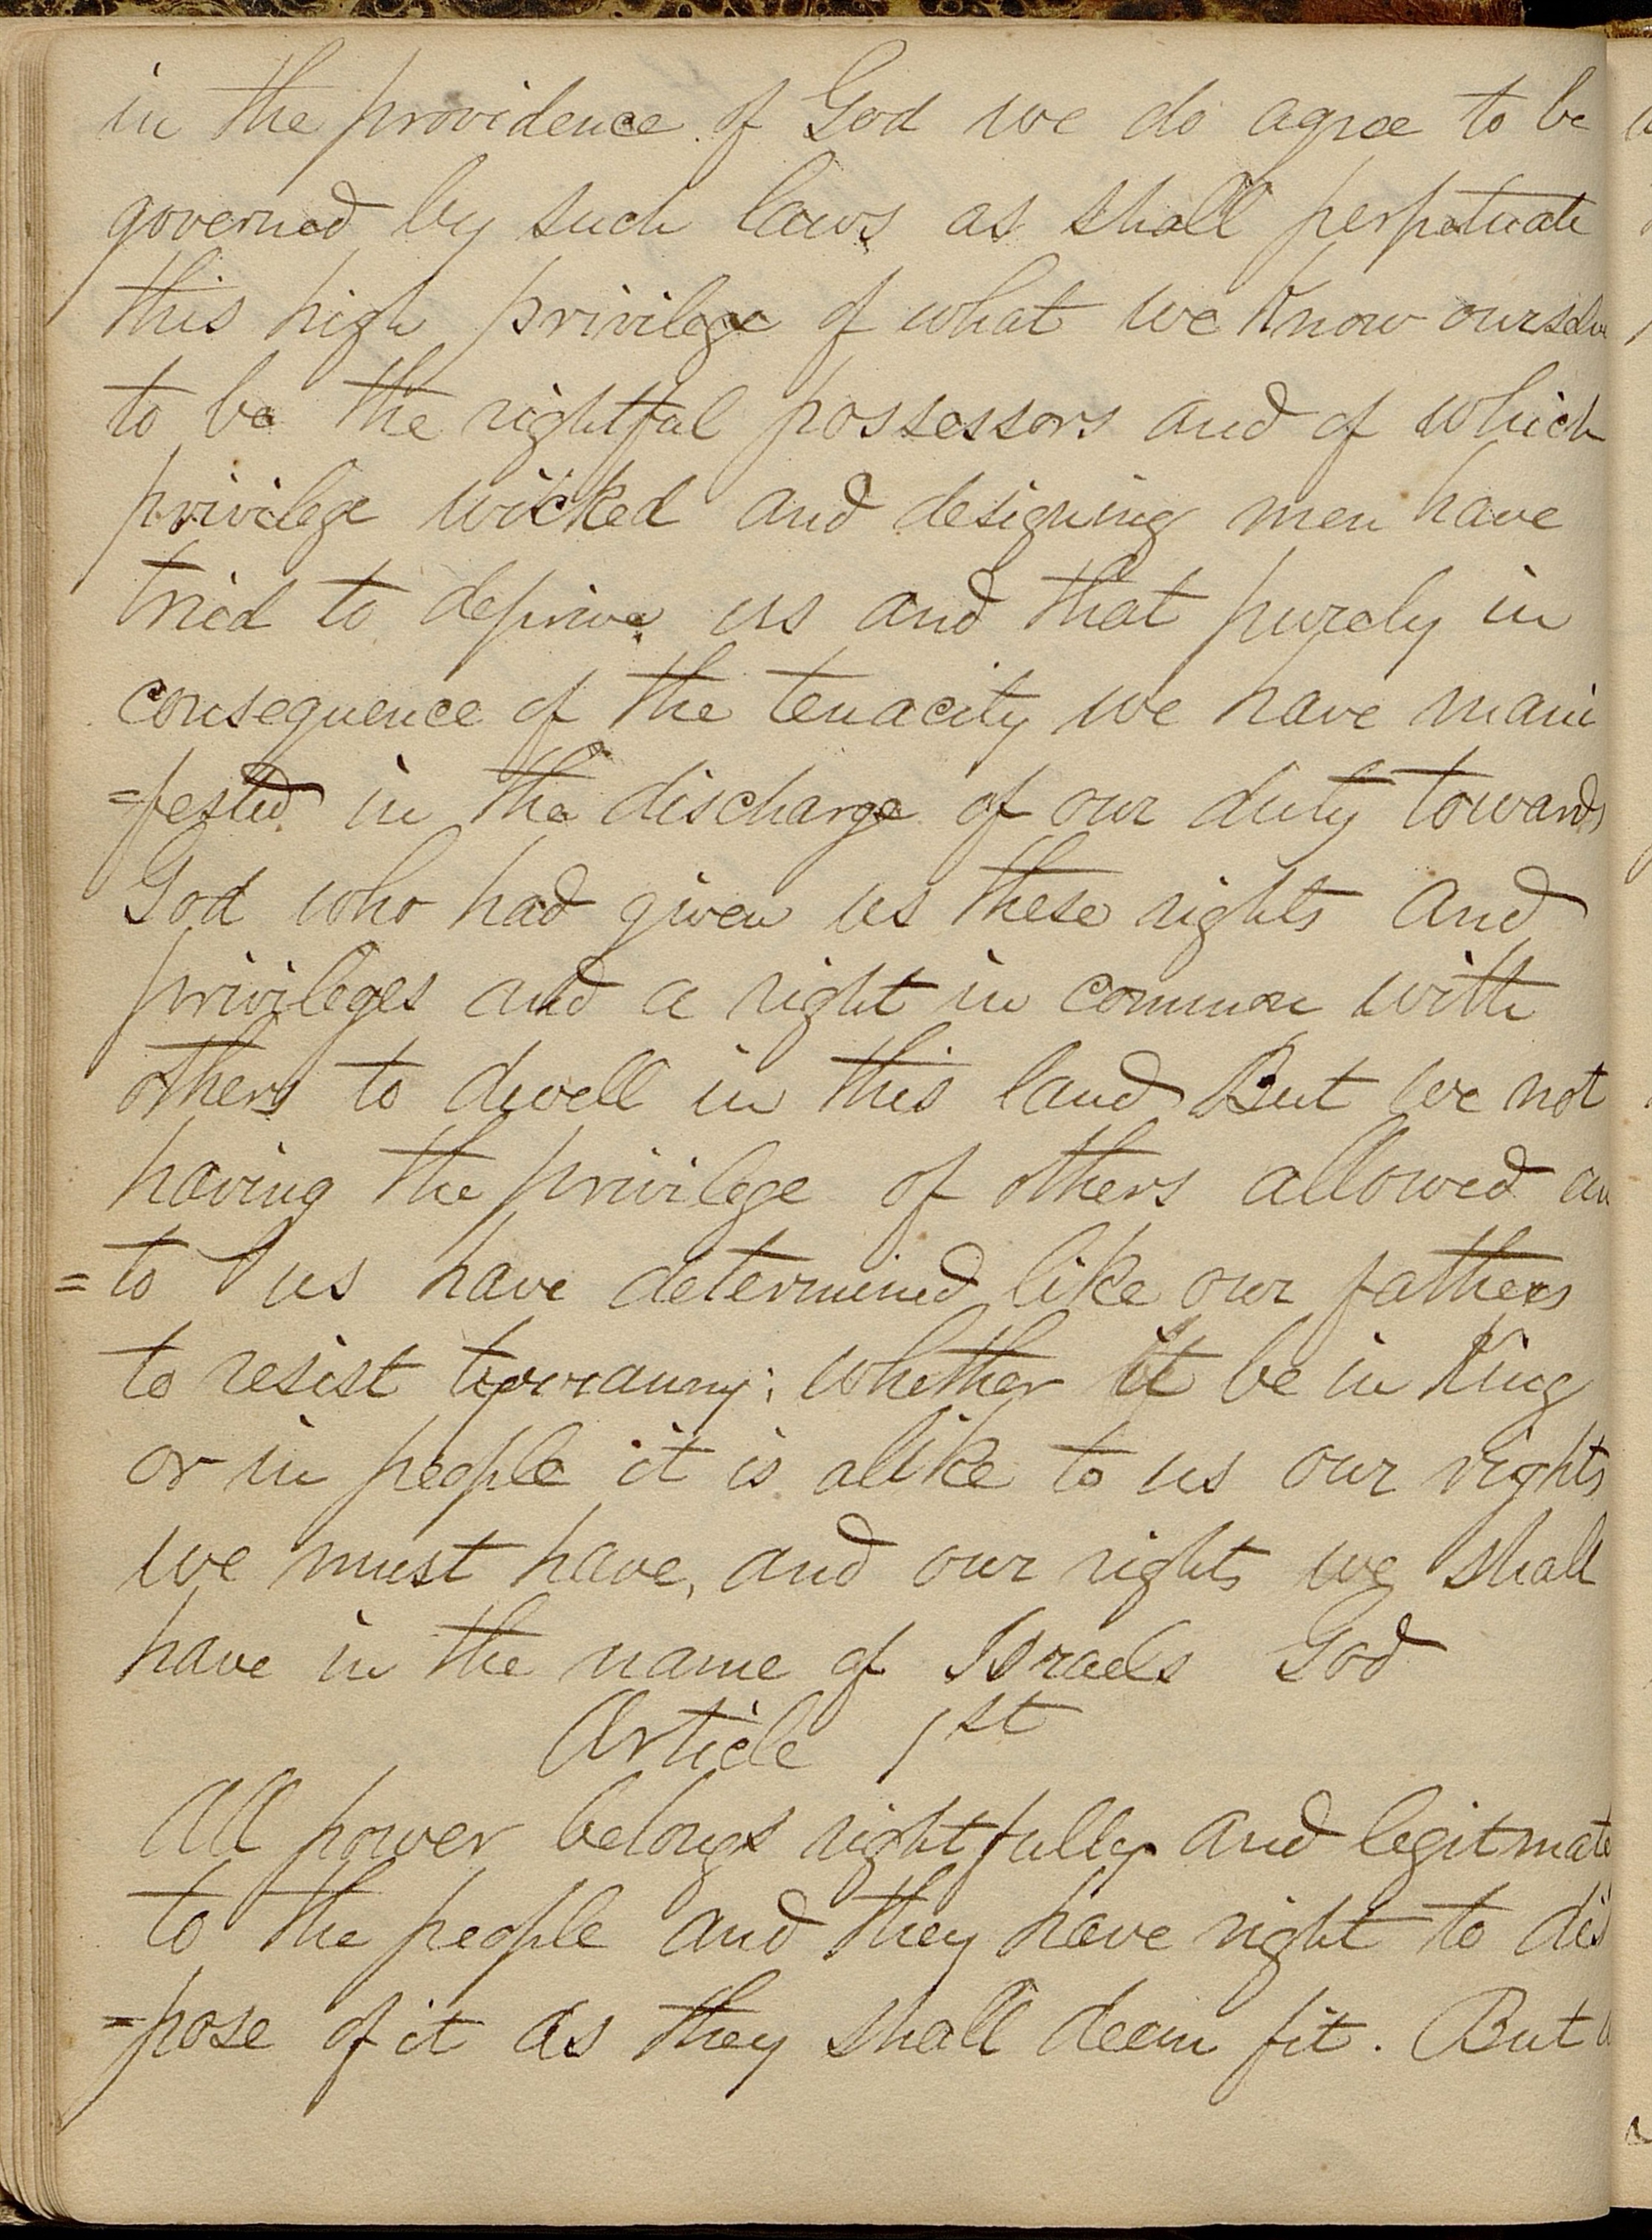 in the providence of God we do agree to be
governed by such laws as shall perpetuate
this high privilege of what we Know ourselve
to be the rightful possessors and of which
privilege wicked and designing men have
tried to deprive us and that purely in
consequence of the tenacity we have mani
=fested in the discharge of our duty towards
God who had given us these rights and
privileges and a right in common with
others to dwell in this land But we not
having the privilege of others allowed un
=to us have determined like our fathers
to resist tyrranny; whether it be in King
or in people it is alike to us our rights
we must have, and our rights we shall
have in the name of Israels God
Article 1st
All power belongs rightfully and legitmate
to the people and they have right to dis
=pose of it as they shall deem fit. But